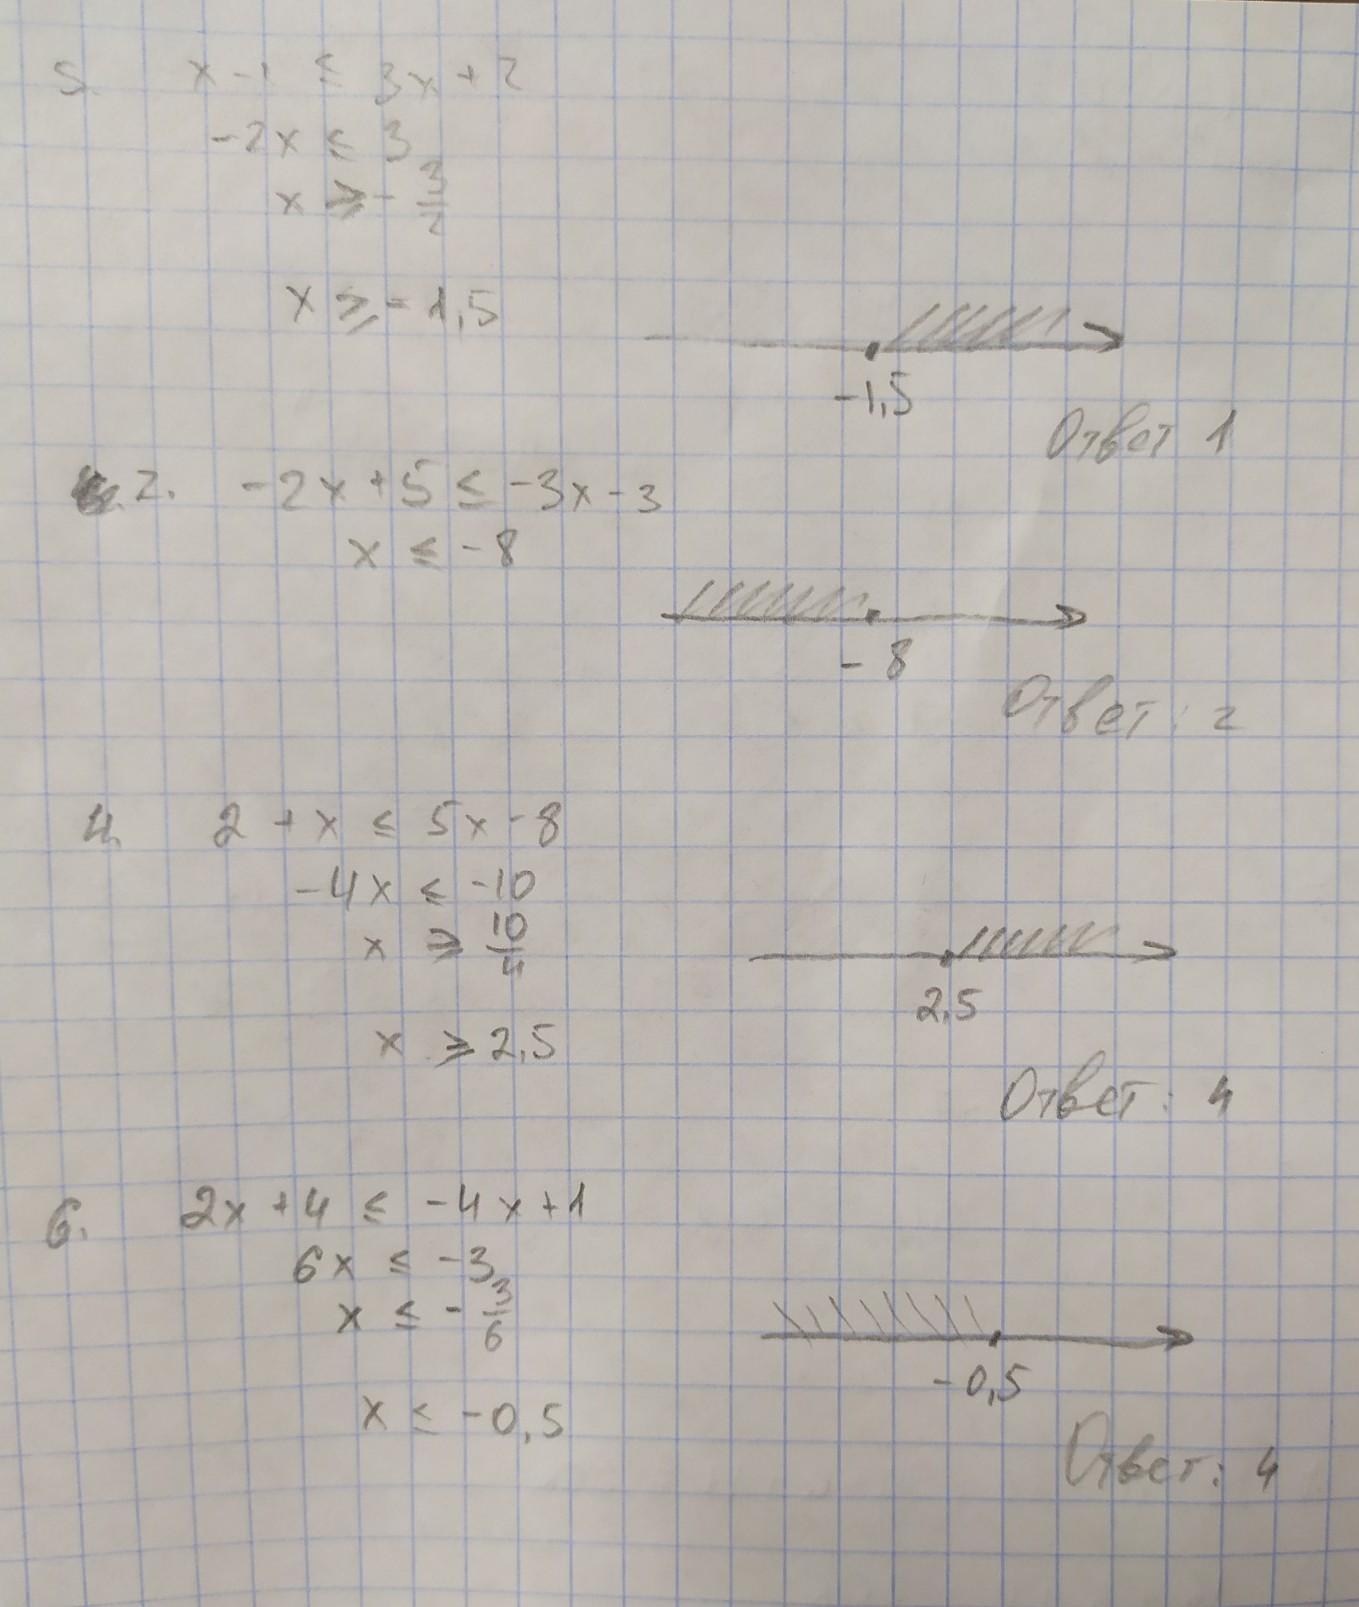 5. x - 1 ≤ 3x + 2
-2x ≤ 3
x ≥ - 3/2
x ≥ -1,5
-1,5
Ответ 1
2. -2x + 5 ≤ -3x - 3
x ≤ -8
-8
Ответ: 2
4. 2 + x ≤ 5x - 8
-4x ≤ -10
x ≥ 10/4
x ≥ 2,5
2,5
Ответ: 4
6. 2x + 4 ≤ -4x + 1
6x ≤ -3
x ≤ - 3/6
x ≤ -0,5
-0,5
Ответ: 4